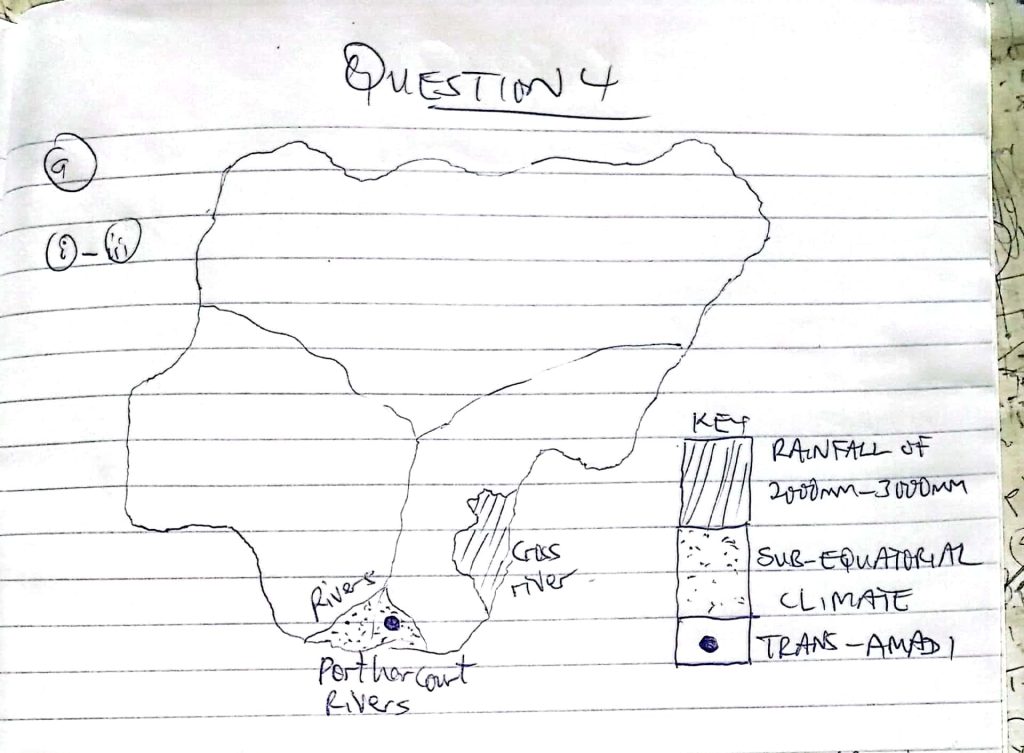 QUESTION 4
a
i - iii
KEY
RAINFALL OF
2000mm-3000mm
Cross
river
SUB-EQUATORIAL
CLIMATE
Rivers
TRANS-AMADI
Portharcourt
Rivers